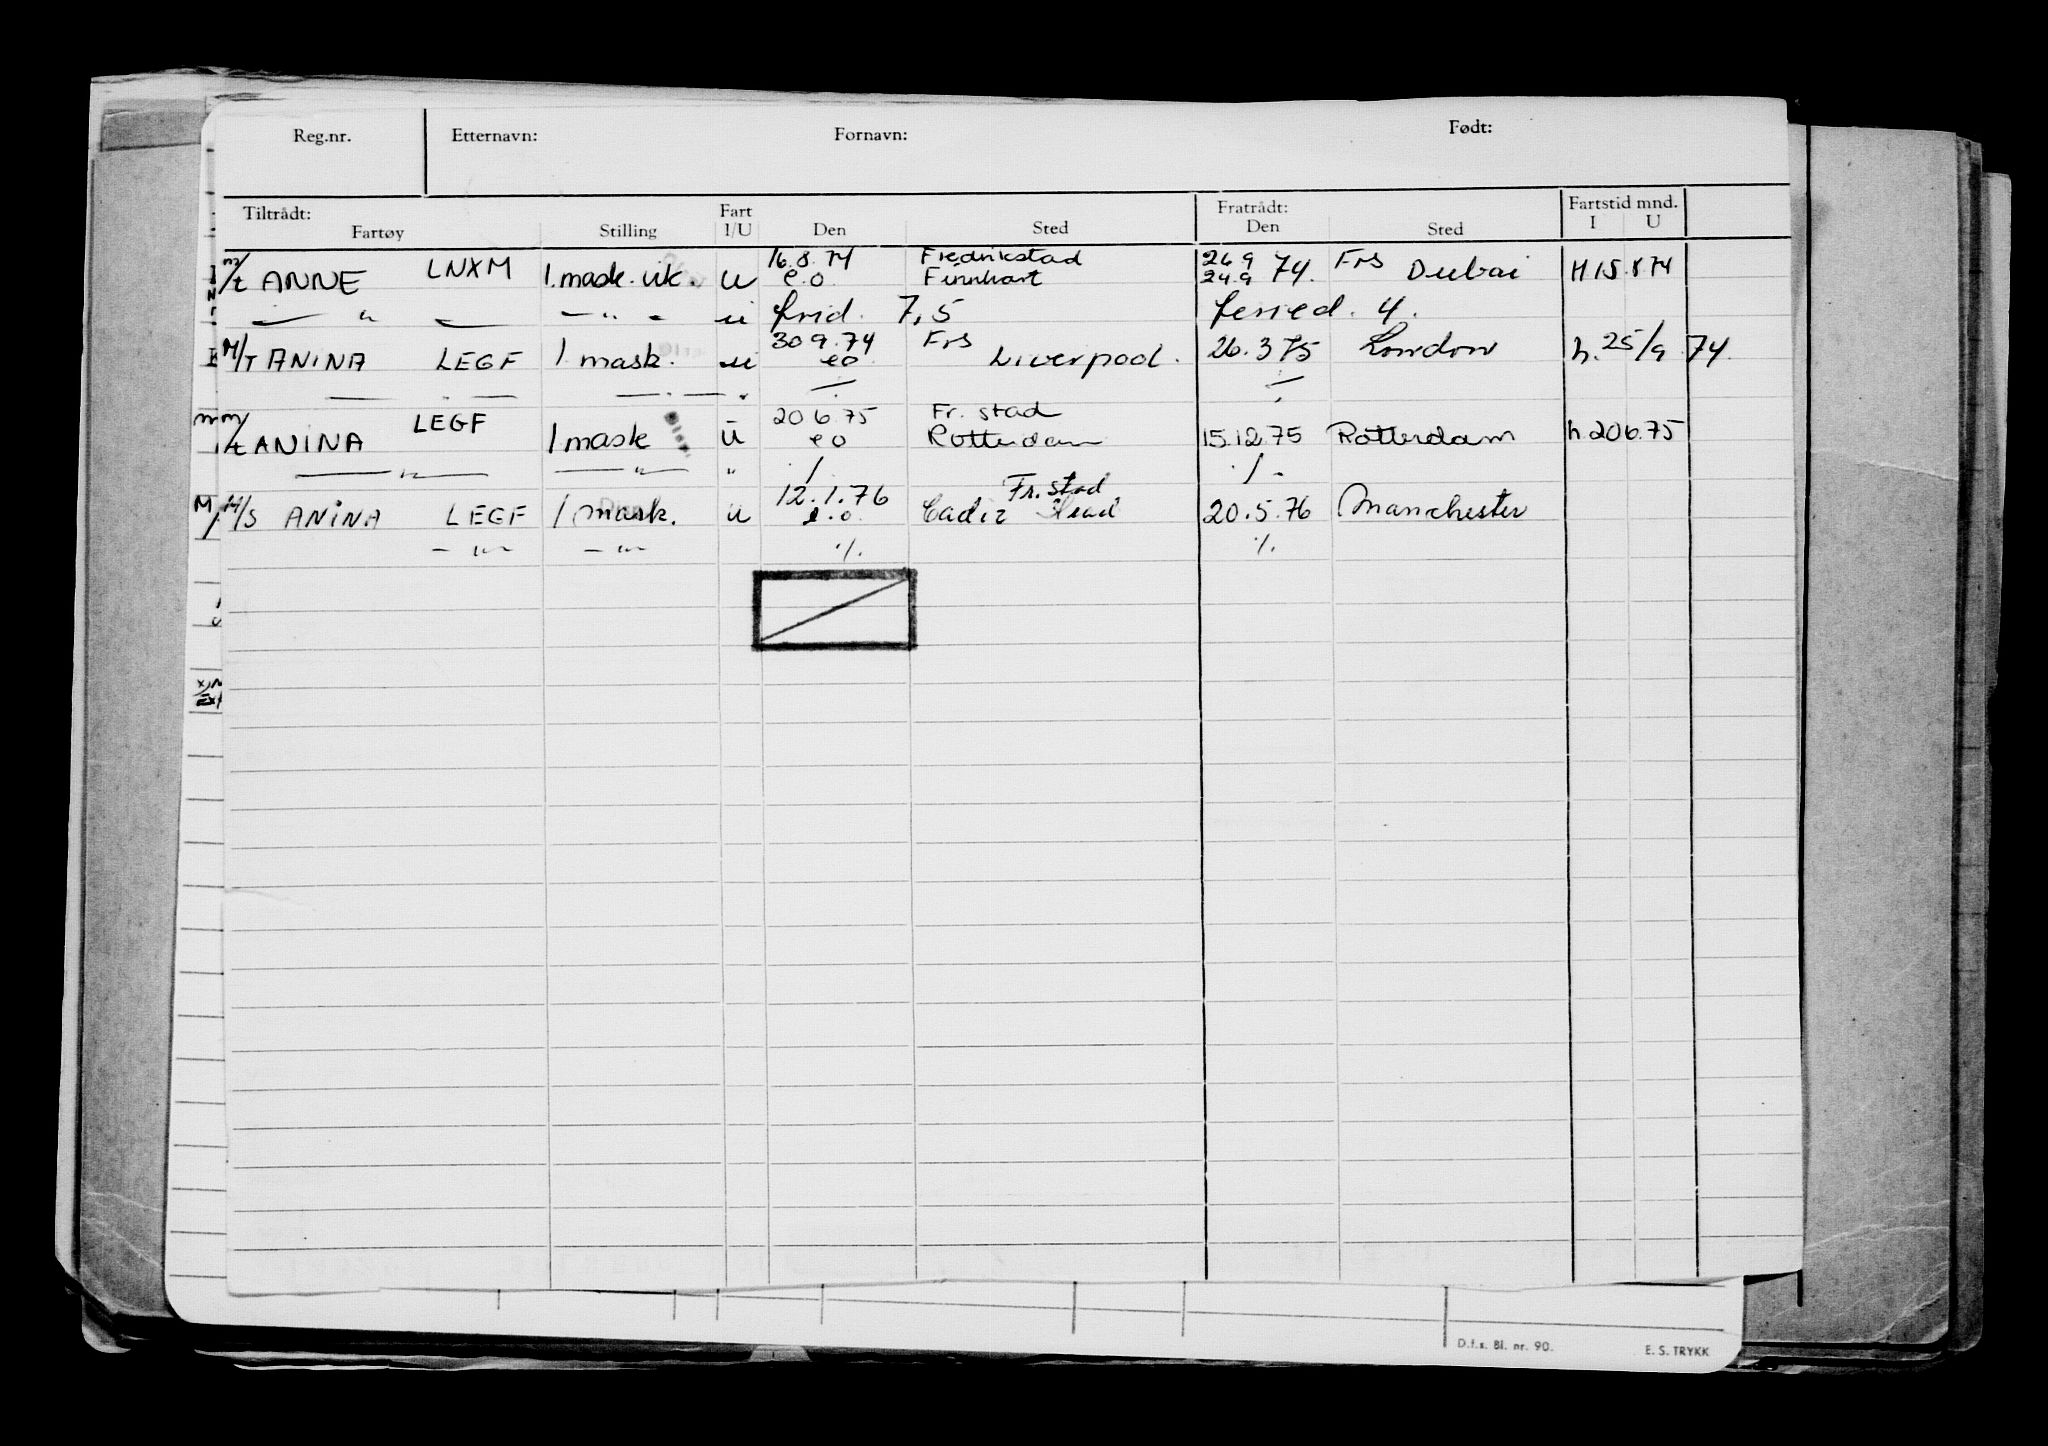 Reg.nr. Etternavn: Fornavn: Født:
Tiltrådt: Fart Fratrådt: Fartstid mnd.
Fartøy Stilling I/U Den Sted Den Sted I U
16.8.74 Fredrikstad 26.9
m/t ANNE LNXM 1.mask.vik. u e.o. 24.9 74. Frs Dubai H 15.8.74
— " — — " — u frid. 7,5 4.
30 9.74 Frs
M/T ANINA LEGF 1 mask. u eo Liverpool. 26.3 75 London h. 25/9 74.
— " — — " — " ./. ./.
20 6.75 Fr. stad
m/t ANINA LEGF 1 mask u eo Rotterdam 15.12.75 Rotterdam h.20 6.75
— " — — " — " ./. ./.
12.1.76 Fr. stad
M/S ANINA LEGF 1 mask. u e.o. Cadiz 20.5.76 Manchester
— " — — " — ./. ./.
D.f.s. Bl. nr. 90. E. S. TRYKK